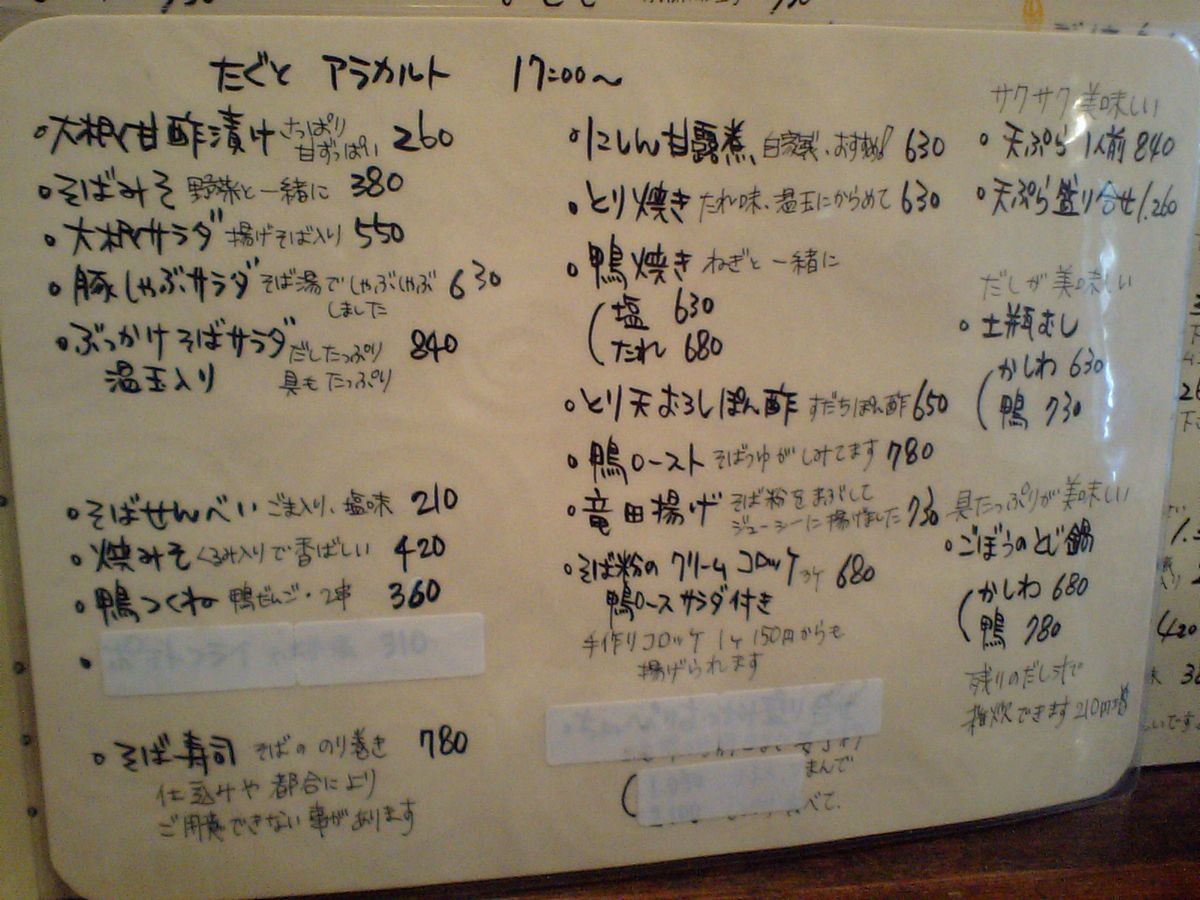 たぐと アラカルト 17:00〜
・大根甘酢漬け さっぱり 甘ずっぱい 260
・そばみそ 野菜と一緒に 380
・大根サラダ 揚げそば入り 550
・豚しゃぶサラダ そば湯でしゃぶしゃぶ 630
しました
・ぶっかけそばサラダ だしたっぷり 840
温玉入り 具もたっぷり
・そばせんべい ごま入り、塩味 210
・焼みそ くるみ入りで香ばしい 420
・鴨つくね 鴨だんご・2串 360
・そば寿司 そばの のり巻き 780
仕込みや都合により
ご用意できない事があります
・にしん甘露煮 自家製、おすすめ! 630
・とり焼き たれ味、温玉にからめて 630
・鴨焼き ねぎと一緒に
塩 630
たれ 680
・とり天おろしぽん酢 すだちぽん酢 650
・鴨ロースト そばつゆがしみてます 780
・竜田揚げ そば粉をまぶして
ジューシーに揚げました 730
・そば粉のクリームコロッケ 3ケ 680
鴨ロースサラダ付き
手作りコロッケ 1ヶ150円からも
揚げられます
まんで
べて.
サクサク美味しい
・天ぷら 1人前 840
・天ぷら盛り合せ 1.260
だしが美味しい
・土瓶むし
かしわ 630
鴨 730
具たっぷりが美味しい
・ごぼうのとじ鍋
かしわ 680
鴨 780
残りのだし汁で
雑炊できます 210円増